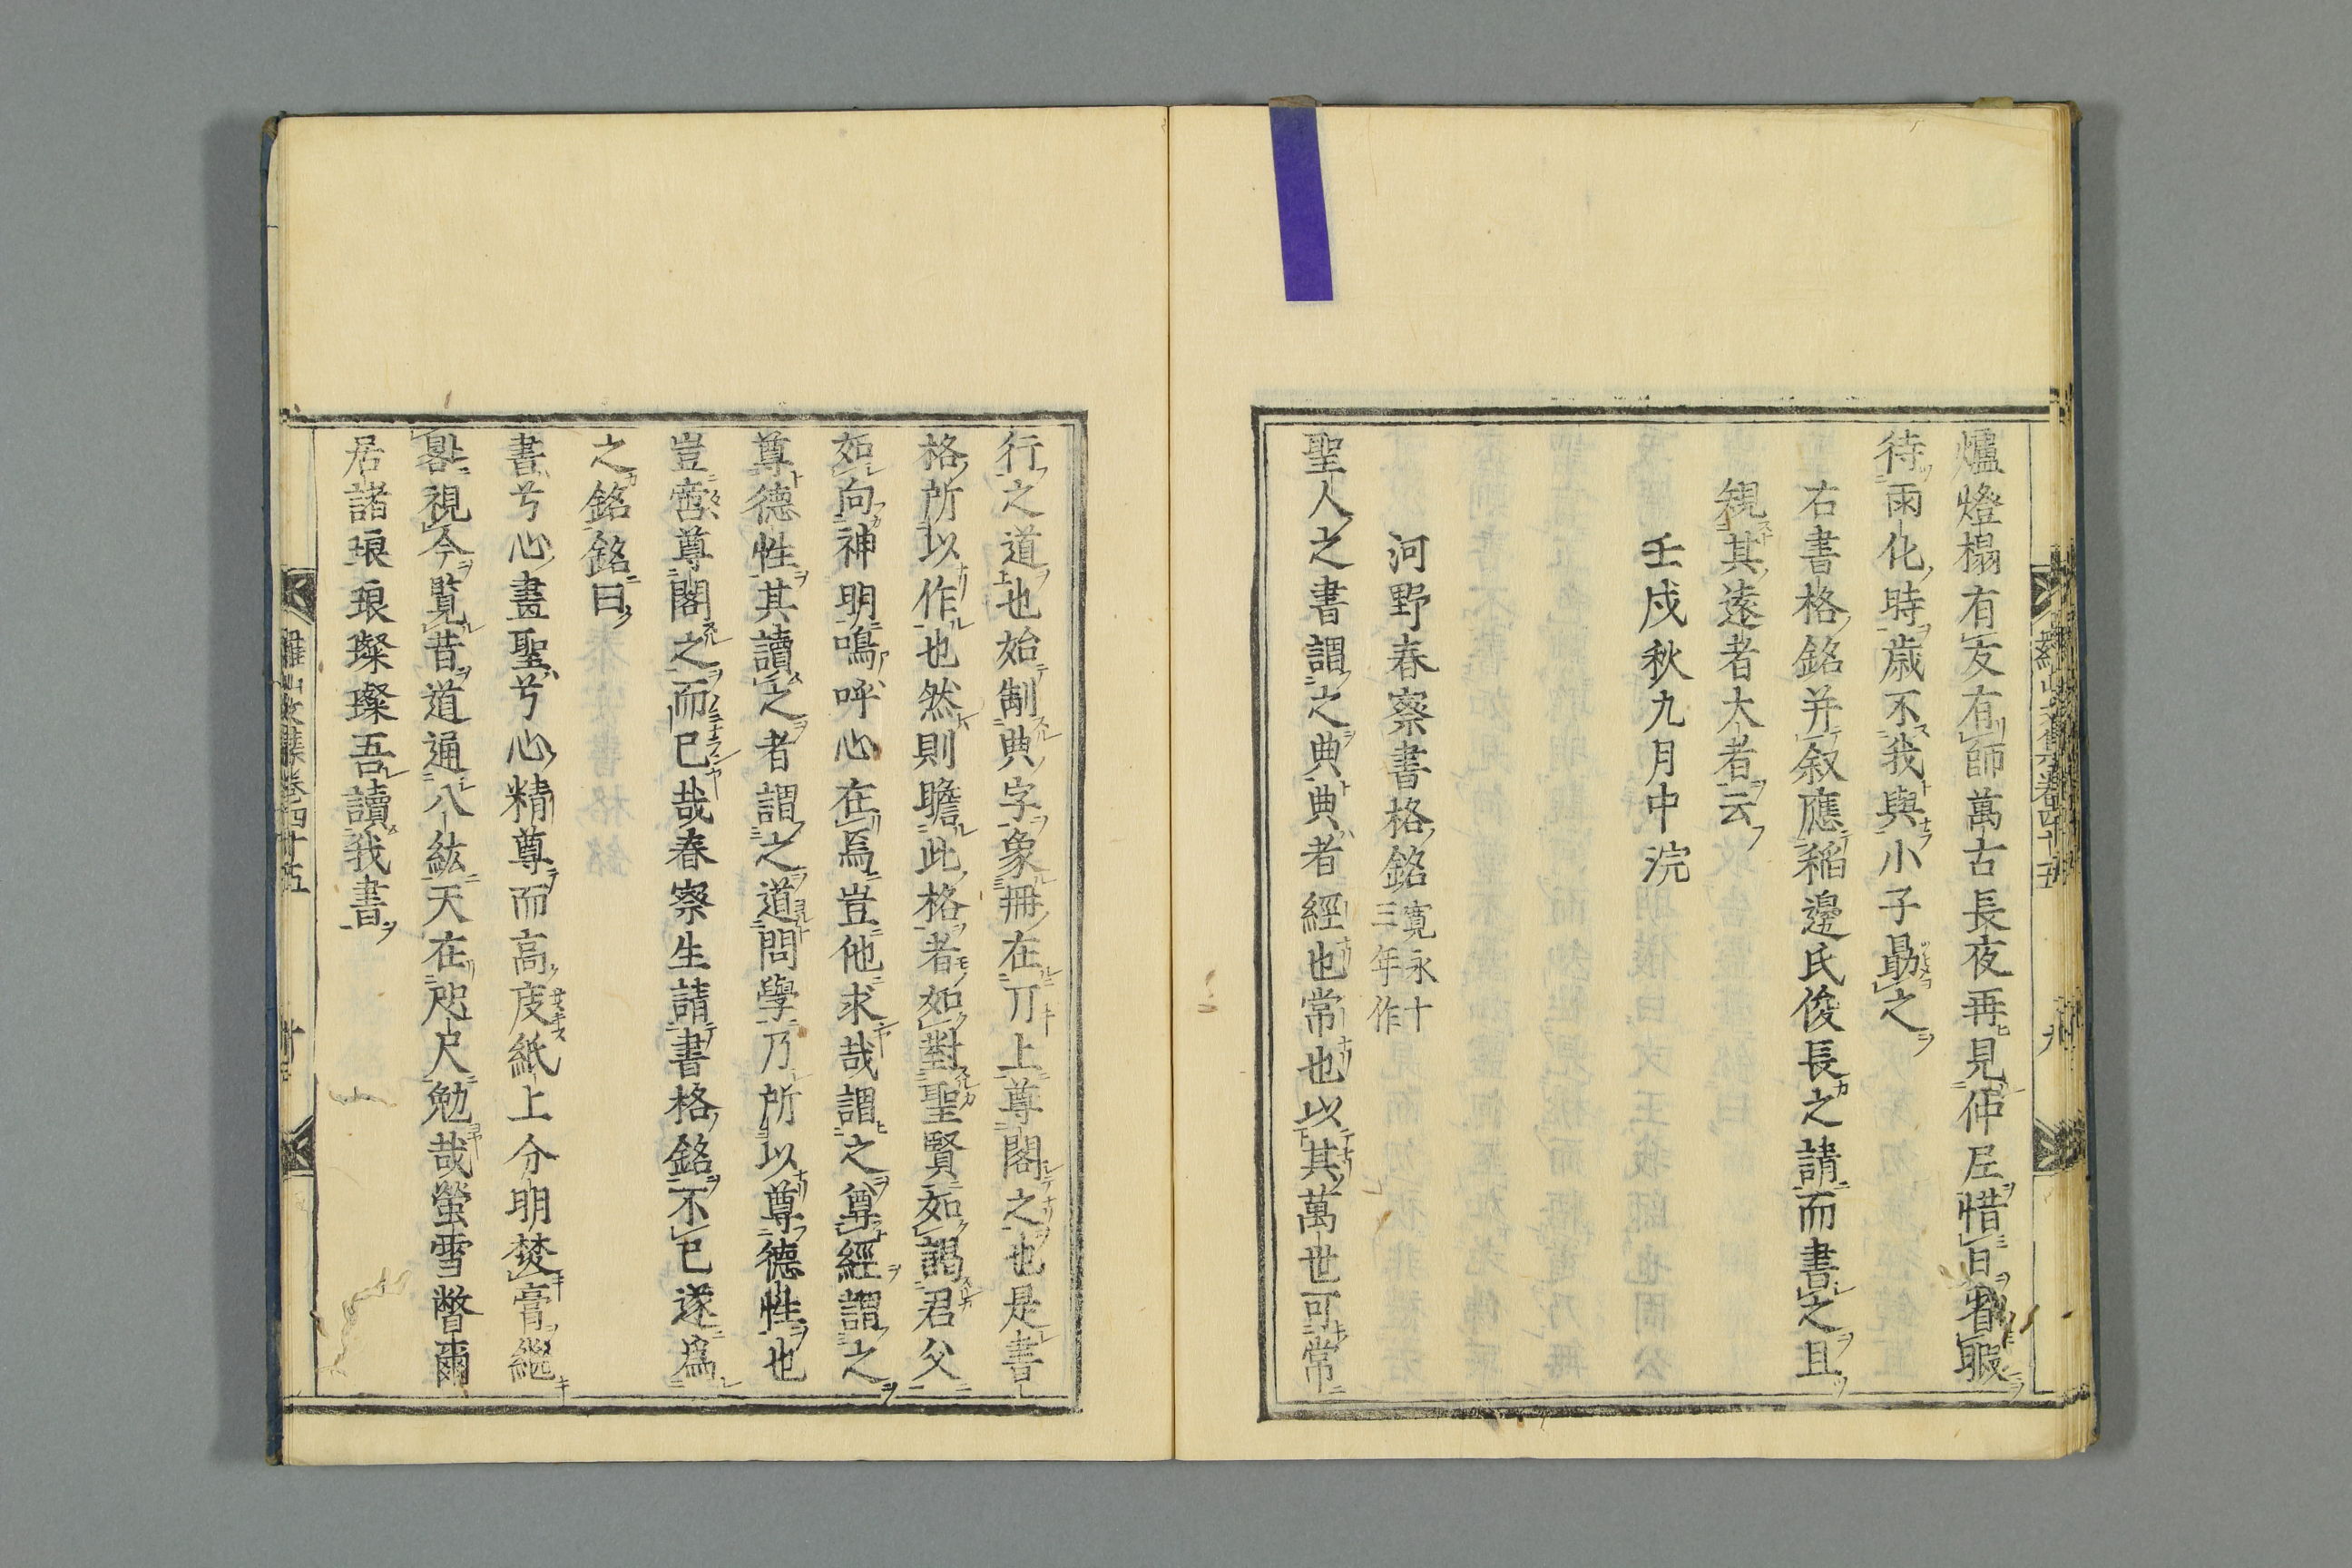 爐燈榻有友有師萬古長夜再見仲尼惜日省瑕
待雨化時歲不我與小子勗之
右書格銘并叙應稲邊氏俊長之請而書之且
視其遠者大者云
壬戌秋九月中浣
河野春察書格銘寬永十三年作
聖人之書謂之典典者經也常也以其萬世可常
行之道也始制典字象冊在丌上尊閣之也是書
格所以作也然則瞻此格者如對聖賢如謁君父
如向神明嗚呼心在焉豈他求哉謂之尊經謂之
尊德性其讀之者謂之道問學乃所以尊德性也
豈啻尊閣之而已哉春察生請書格銘不已遂爲
之銘銘曰
書兮心畫聖兮心精尊而高庋紙上分明焚膏繼
晷視今覧昔道通八紘天在咫尺勉哉螢雪瞥爾
居諸琅琅璨璨吾讀我書
羅山文集卷四十五